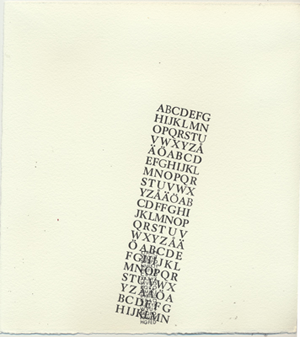 ABCDEFG
HIJKLMN
OPQRSTU
VWXYZÅ
ÄÖABCD
EFGHIJKL
MNOPQR
STUVWX
YZÅÄÖAB
CDFFGHI
JKLMNOP
QRSTUV
WXYZÅÄ
ÖABCDE
FGHIJKL
MNOPQR
STUVWX
YZÅÄÖA
BCDEFG
HIJKLMN